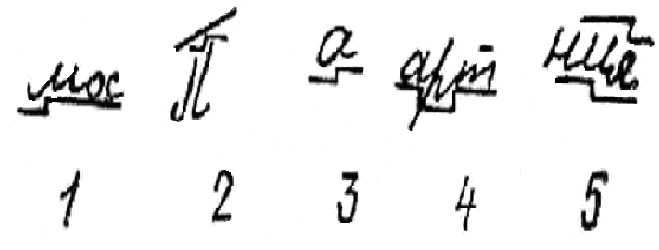 мос П а арт нця
1 2 3 4 5